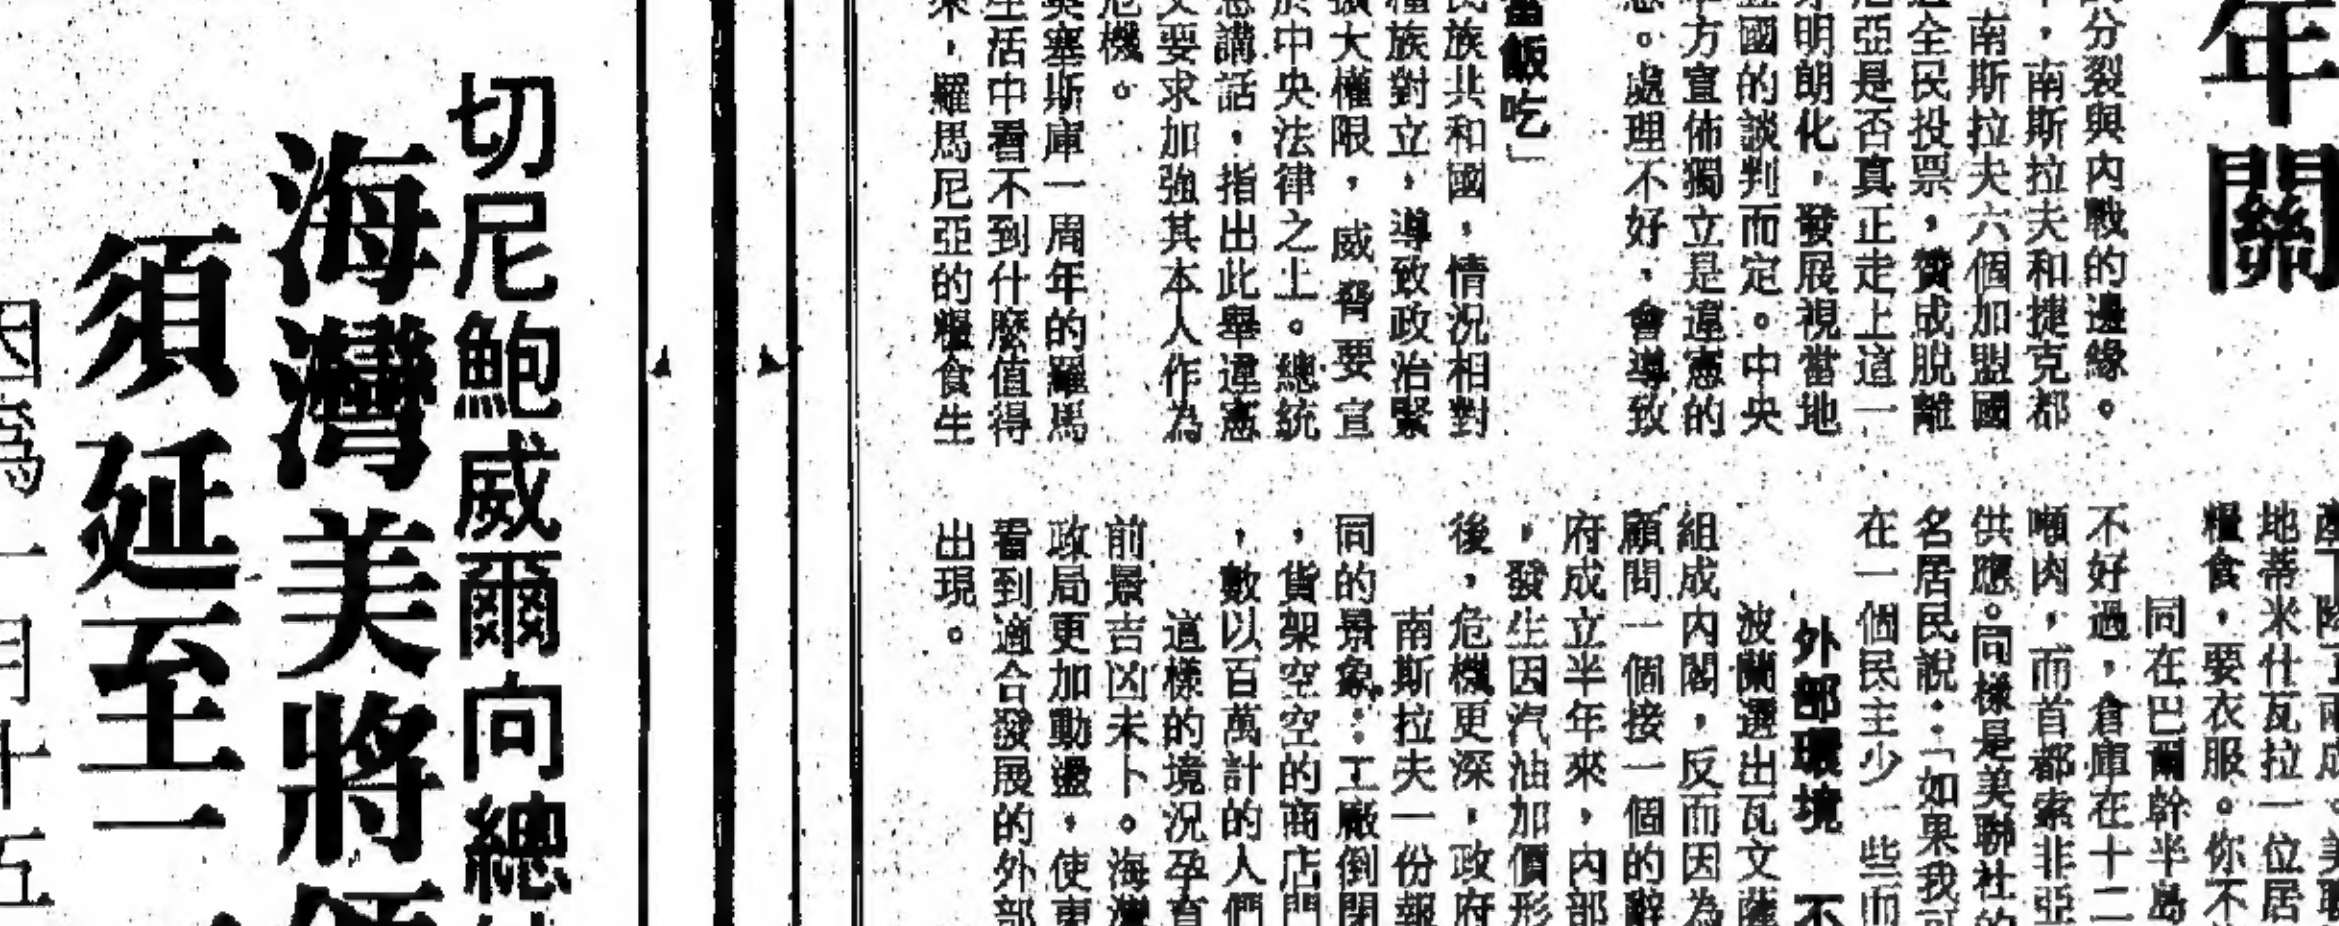 年關
分裂與內戰的邊緣。
，南斯拉夫和捷克都
南斯拉夫六個加盟國
全民投票，贊成脫離
亞是否真正走上這一
明朗化，發展視當地
國的談判而定。中央
方宣佈獨立是違憲的
。處理不好，會導致
當飯吃」
民族共和國，情況相對
種族對立，導致政治緊
擴大權限，威脅要宣
於中央法律之上。總統
講話，指出此舉違憲
又要求加強其本人作為
危機。
塞斯庫一周年的羅馬
生活中看不到什麼值得
來，羅馬尼亞的糧食生
產下降了兩成。美聯
地蒂米什瓦拉一位居
糧食，要衣服。你不
同在巴爾幹半島
不好過，倉庫在十二
噸肉，而首都索非亞
供應。同樣是美聯社的
名居民說：「如果我可
在一個民主少一些而
外部環境　不
波蘭選出瓦文薩
組成內閣，反而因為
顧問一個接一個的辭
府成立半年來，內部
，發生因汽油加價形
後，危機更深，政府
南斯拉夫一份報
同的景象：工廠倒閉
，貨架空空的商店門
，數以百萬計的人們
這樣的境況孕育
前景吉凶未卜。海灣
政局更加動盪，使東
看到適合發展的外部
出現。
切尼鮑威爾向總
海灣美將領
須延至二
因為一月十五